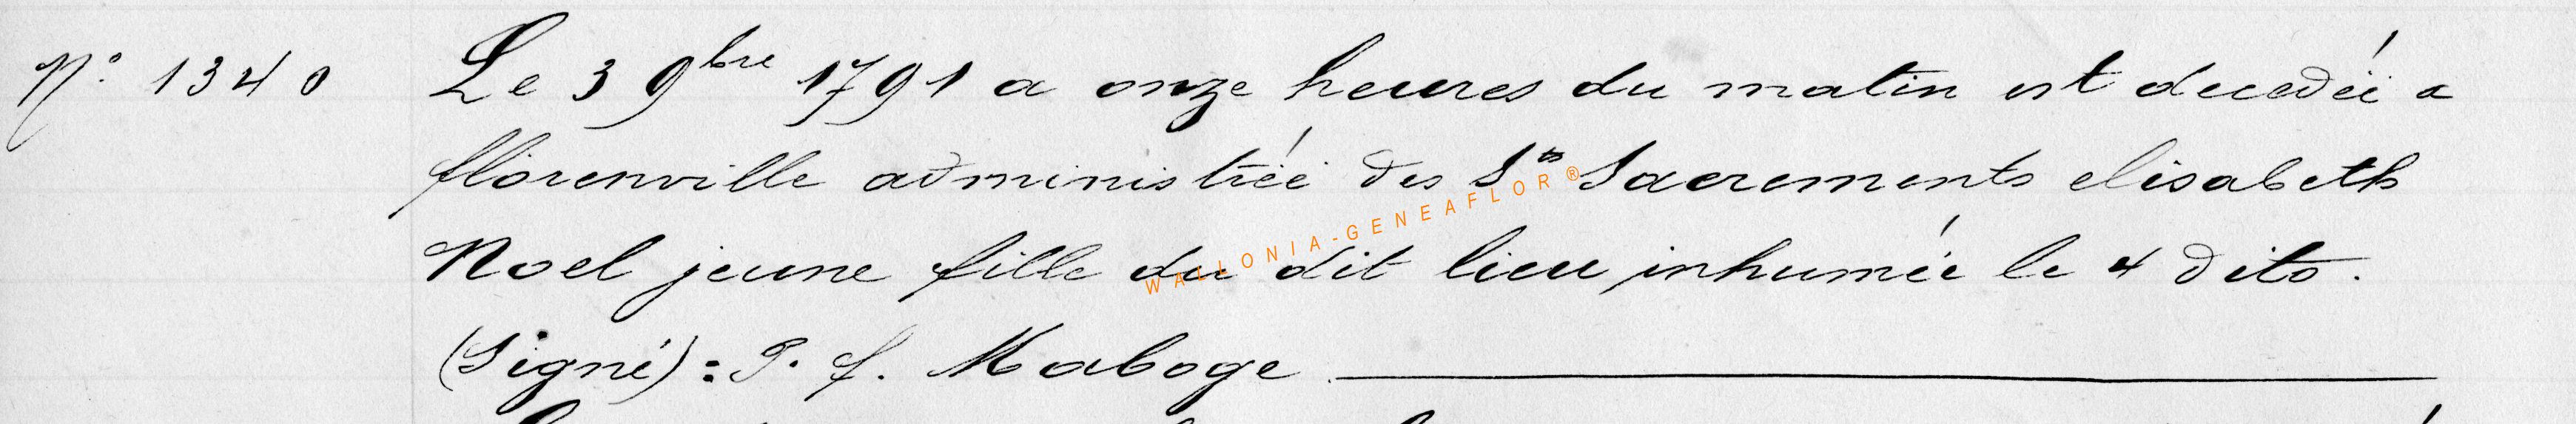 N° 1340 Le 3 9bre 1791 a onze heures du matin est decedée a
florenville administrée des Sts Sacrements elisabeth
Noel jeune fille du dit lieu inhumée le 4 dito.
(Signé) : P. f. Maboge
WALLONIA-GENEAFLOR®